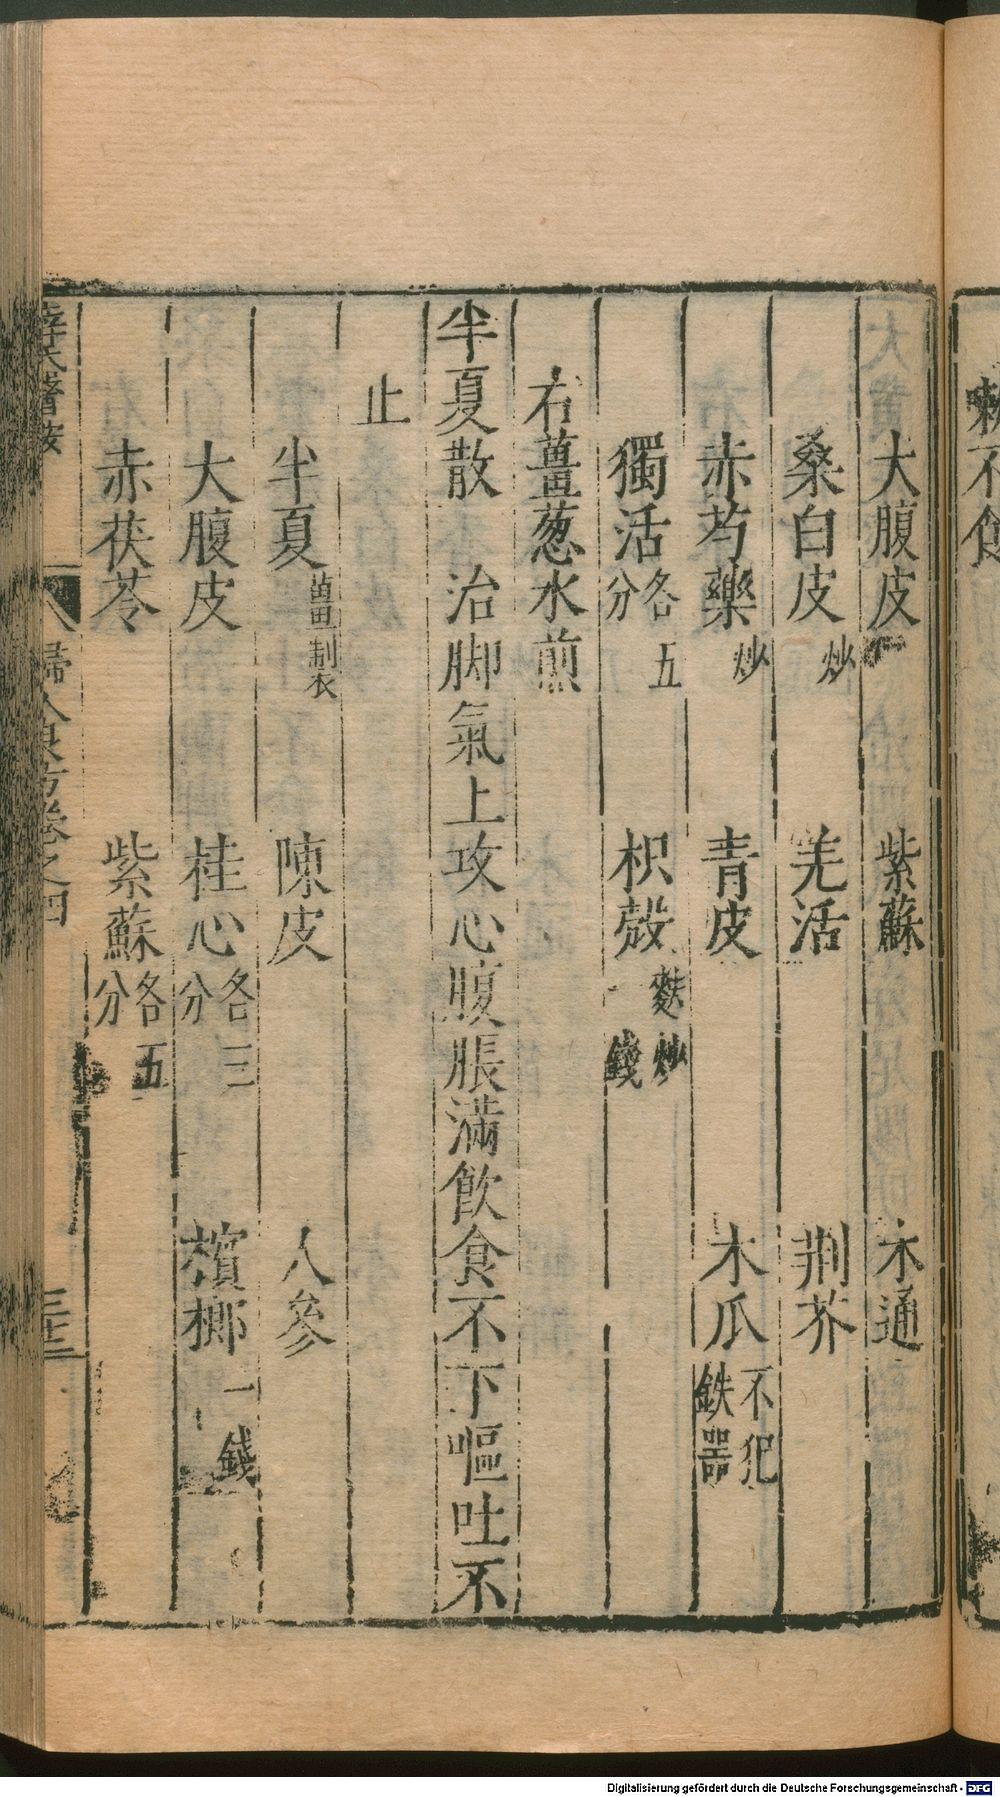 大腹皮　紫蘇　木通
桑白皮炒　羌活　荆芥
赤芍藥炒　青皮　木瓜不犯鉄器
獨活各五分　枳殼麩炒錢
右薑葱水煎
半夏散　治脚氣上攻心腹脹滿飲食不下嘔吐不
止
半夏薑制衣　陳皮　人參
大腹皮　桂心各三分　檳榔一錢
赤茯苓　紫蘇各五分
婦人良方卷之四
不食
Digitalisierung gefördert durch die Deutsche Forschungsgemeinschaft - DFG